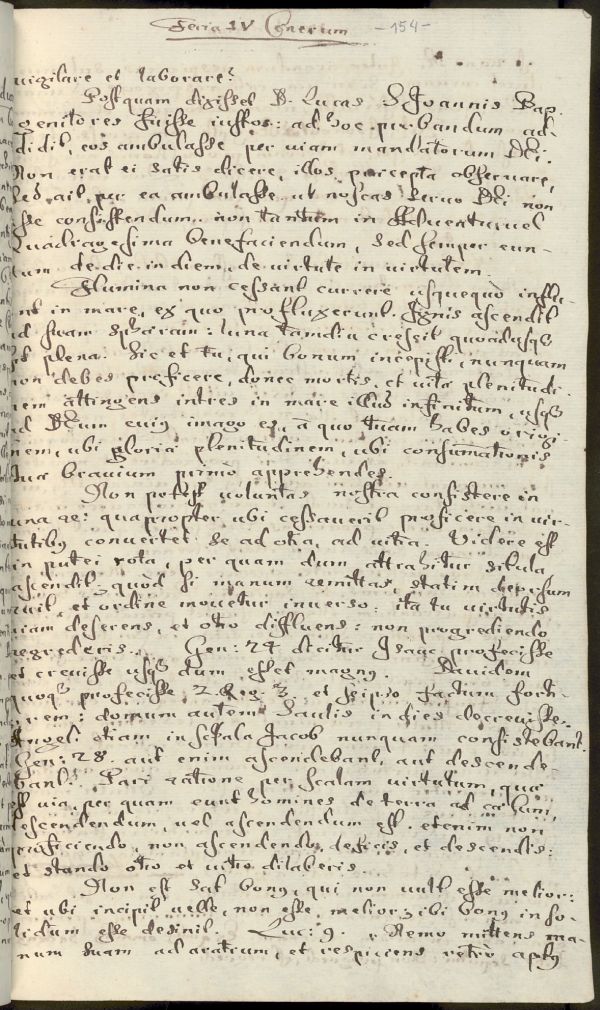 Feria IV Cinerum - 154 -
vigilare et laborare?
Postquam dixisset D. Lucas S. Joannis Bap.
genitores fuisse iustos: ad hoc probandum ad-
didit, eos ambulasse per viam mandatorum Dei.
Non erat ei satis dicere, illos praecepta observare,
sed ait, per ea ambulasse. ut noscas servo Dei non
esse consistendum. non tantum in Adventu vel
Quadragesima benefaciendum, sed semper eun-
dum de die in diem, de virtute in virtutem.
Flumina non cessant currere usquequò influ-
ant in mare, ex quo profluxerunt. Ignis ascendit
ad suam sphaeram: luna tamdiu crescit, quoadusq3
sit plena. Sic et tu, qui bonum incepisti, nunquam
non debes proficere, donec mortis, et vitae plenitudi-
nem attingens intres in mare illud infinitum, usq3
ad Deum cuius imago es, à quo tuam habes origi-
nem, ubi gloriae plenitudinem, ubi consumationis
tuae bravium primò apprehendes.
Non potest voluntas nostra consistere in
una re: quapropter, ubi cessaverit proficere in vir-
tutibus convertet se ad otia, ad vitia. Videre est
in putei rota, per quam dum attrahitur situla
ascendit, quòd si manum remittas, statim deorsum
ruit, et ordine movetur inverso: ita tu virtutis
viam deserens, et otio diffluens: non progrediendo
regrederis. Gen: 24 dicitur Isaac profecisse
et crevisse usq3 dum esset magnus. Davidem
quoq3 profecisse 2. Reg. 3. et seipso factum forti-
orem: domum autem Saulis in dies decrevisse.
Angeli etiam in scala Jacob nunquam consistebant.
Gen: 28. aut enim ascendebant, aut descende-
bant. Pari ratione per scalam virtutum, quae
est via, per quam eunt homines de terra ad caelum,
descendendum, vel ascendendum est. etenim non
proficiendo, non ascendendo, deficis, et descendis:
et stando otio et vitio dilaberis.
Non est sat bonus, qui non vult esse melior:
et ubi incipit velle, non esse melior, ibi bonus in so-
lidum esse desinit. Luc: 9. Nemo mittens ma-
num suam ad aratrum, et respiciens retrò aptus